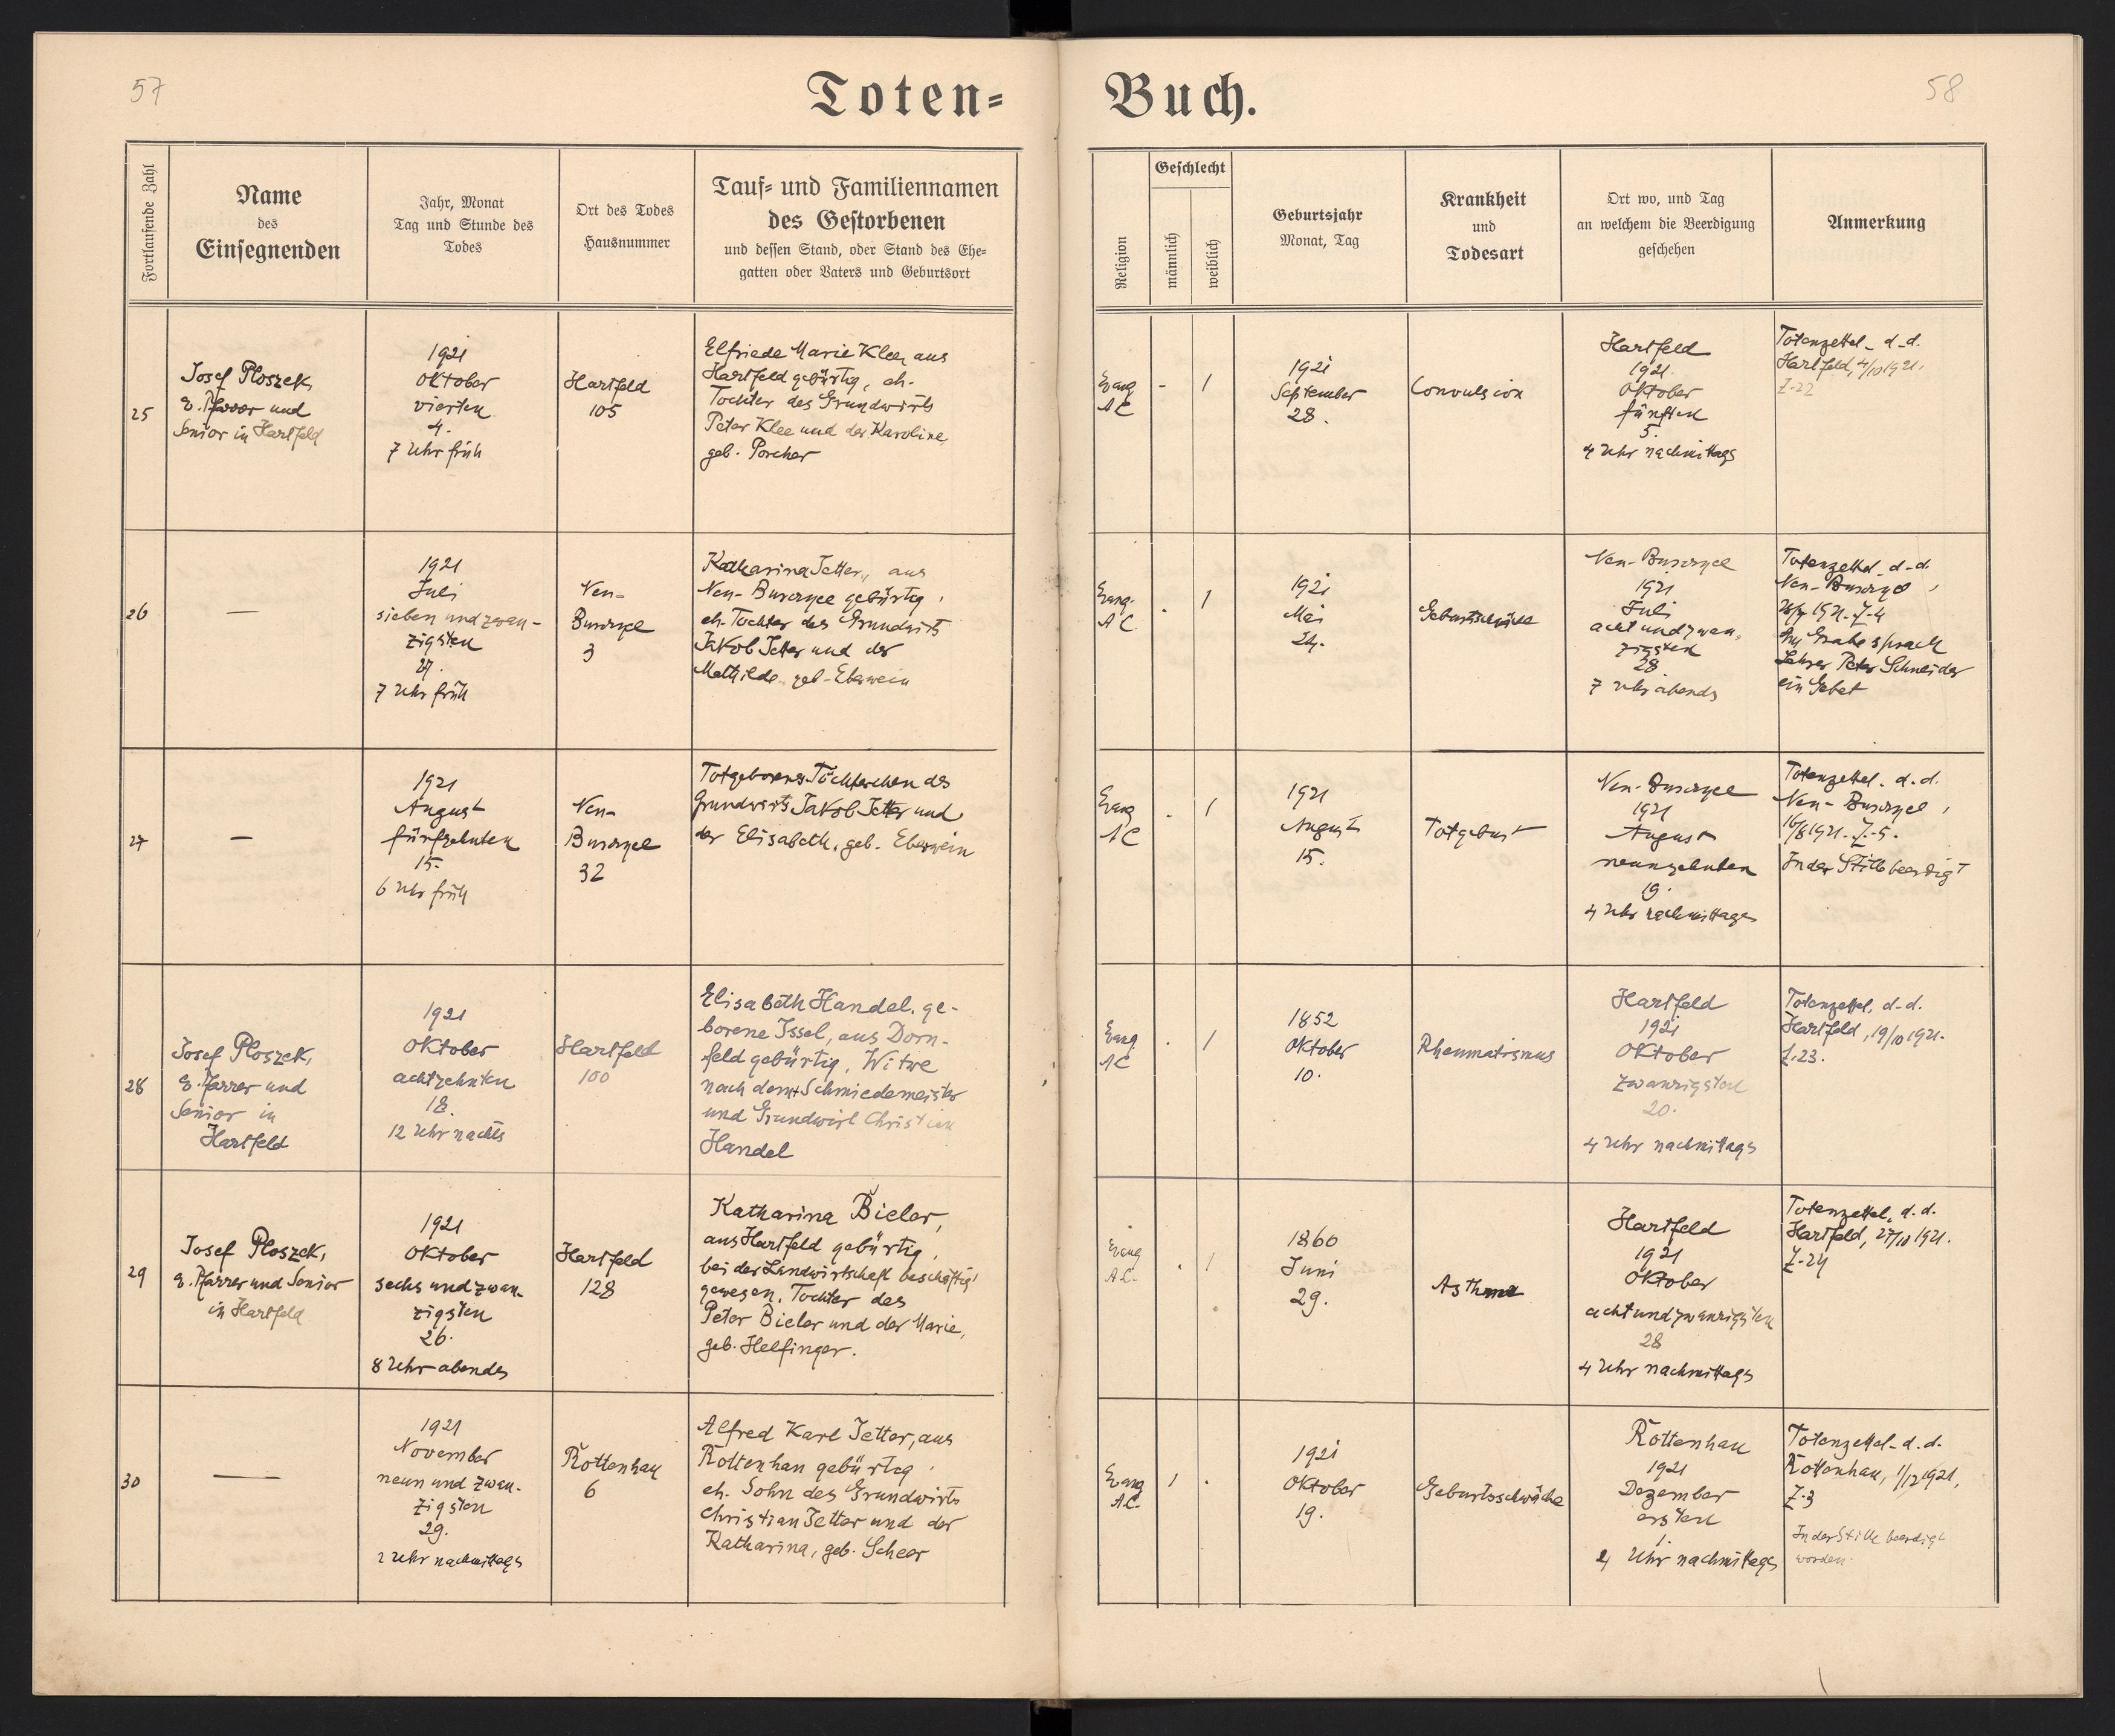 57
Toten=
Buch.
58
Fortlaufende Zahl
Name
des
Einsegnenden
Jahr, Monat
Tag und Stunde des
Todes
Ort des Todes
Hausnummer
Tauf= und Familiennamen
des Gestorbenen
und dessen Stand, oder Stand des Ehe=
gatten oder Vaters und Geburtsort
Religion
Geschlecht
männlich
weiblich
Geburtsjahr
Monat, Tag
Krankheit
und
Todesart
Ort wo, und Tag
an welchem die Beerdigung
geschehen
Anmerkung
25
Josef Ploszek,
e. Pfarrer und
Senior in Hartfeld
1921
Oktober
vierten
4.
7 Uhr früh
Hartfeld
105
Elfriede Marie Klee, aus
Hartfeld gebürtig, eh.
Tochter des Grundwirts
Peter Klee und der Karoline,
geb. Porcher
Evang
AC
-
1
1921
September
28.
Convulsion
Hartfeld
1921.
Oktober
fünften
5.
4 Uhr nachmittags
Totenzettel d.d.
Hartfeld, 4/10 1921.
Z-22
26
—
1921
Juli
sieben und zwan-
zigsten
27.
7 Uhr früh
Neu-
3
Katharina Jetter, aus
Neu- gebürtig,
eh. Tochter des Grundwirts
Jakob Jetter und der
Mathilde geb. Eberwein
Evang.
AC
.
1
1921
Mai
24.
Geburtsschwäche
Neu-
1921
Juli
acht und zwan-
zigsten
28
7 Uhr abends
Totenzettel d.d.
Neu-
28/7 1921. Z-4
Am Grabe sprach
Lehrer Peter Schneider
ein Gebet
27
—
1921
August
fünfzehnten
15.
6 Uhr früh
Neu-
32
Totgeborenes Töchterchen des
Grundwirts Jakob Jetter und
der Elisabeth, geb. Eberwein
Evang
AC
.
1
1921
August
15.
Totgeburt
Neu-
1921
August
neunzehnten
19.
4 Uhr nachmittags
Totenzettel. d.d.
Neu-
16/8 1921. Z.-5.
In der Stille beerdigt
28
Josef Ploszek,
e. Pfarrer und
Senior in
Hartfeld
1921
Oktober
achtzehnten
18.
12 Uhr nachts
Hartfeld
100
Elisabeth Handel, ge-
borene Issel, aus Dorn-
feld gebürtig, Witwe
nach dem + Schmiedemeister
und Grundwirt Christian
Handel
Evang
AC
.
1
1852
Oktober
10.
Rheumatismus
Hartfeld
1921
Oktober
zwanzigsten
20.
4 Uhr nachmittags
Totenzettel, d.d.
Hartfeld, 19/10 1921.
Z.23.
29
Josef Ploszek,
e. Pfarrer und Senior
in Hartfeld
1921
Oktober
sechs und zwan-
zigsten
26.
8 Uhr abends
Hartfeld
128
Katharina Bieler,
aus Hartfeld gebürtig,
bei der Landwirtschaft beschäftigt
gewesen, Tochter des
Peter Bieler und der Marie,
geb. Helfinger.
Evang
AC.
.
1
1860
Juni
29.
Asthma
Hartfeld
1921
Oktober
achtundzwanzigsten
28
4 Uhr nachmittags
Totenzettel, d.d.
Hartfeld, 27/10 1921.
Z-24
30
—
1921
November
neun und zwan-
zigsten
29.
2 Uhr nachmittags
Rottenhan
6
Alfred Karl Jetter, aus
Rottenhan gebürtig,
eh. Sohn des Grundwirts
Christian Jetter und der
Katharina, geb. Scheer
Evang
AC.
1
.
1921
Oktober
19.
Geburtsschwäche
Rottenhan
1921
Dezember
ersten
1.
2 Uhr nachmittags
Totenzettel d.d.
Rottenhan, 1/12 1921,
Z-3
In der Stille beerdigt
worden.